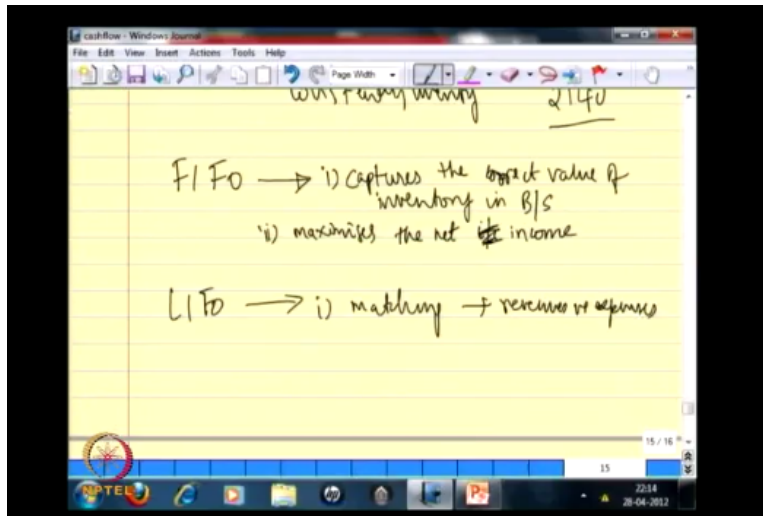 cashflow - Windows Journal
File Edit View Insert Actions Tools Help
Page Width
2140
FIFO → i) captures the correct value of
inventory in B/S
ii) maximises the net income
LIFO → i) matching → revenues vs expenses
15 / 16
15
NPTEL
22:14
28-04-2012